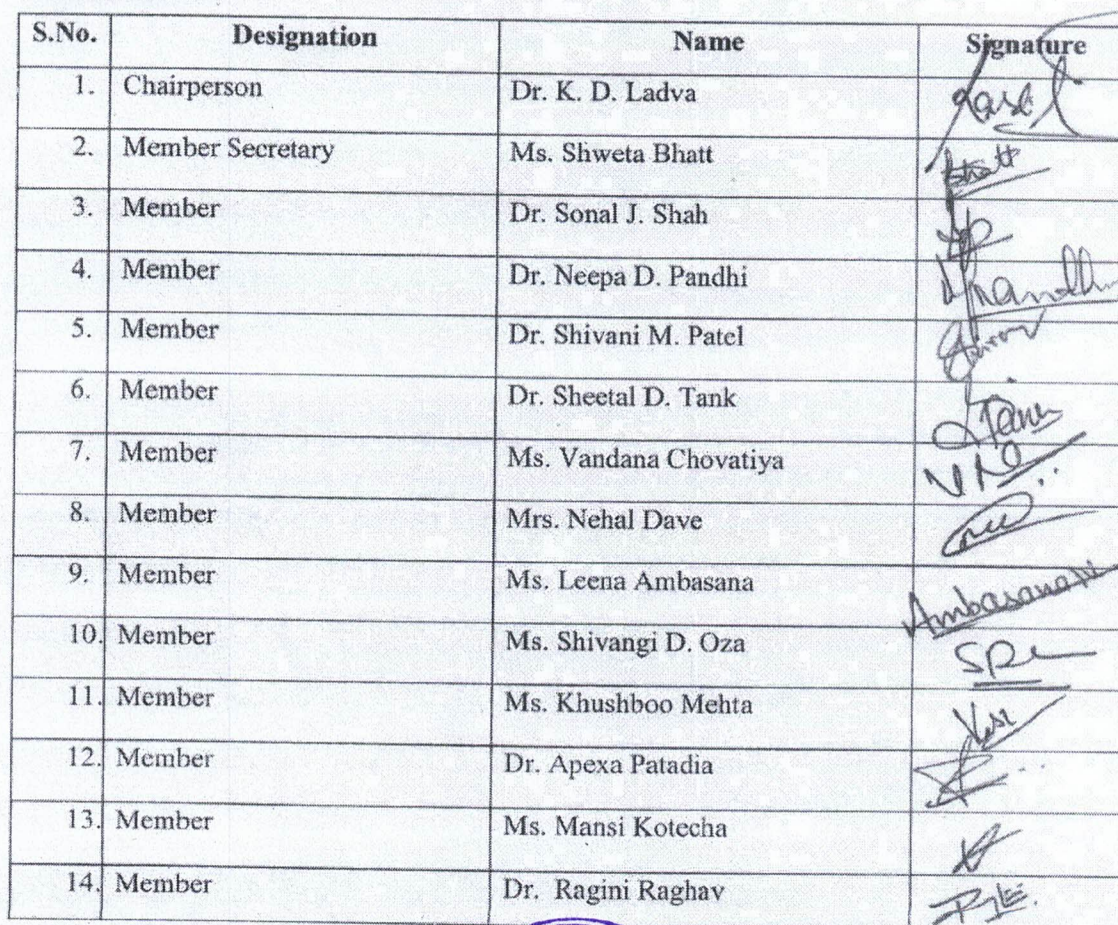 S.No. Designation Name Signature
1. Chairperson Dr. K. D. Ladva
2. Member Secretary Ms. Shweta Bhatt Bhatt
3. Member Dr. Sonal J. Shah
4. Member Dr. Neepa D. Pandhi
5. Member Dr. Shivani M. Patel
6. Member Dr. Sheetal D. Tank
7. Member Ms. Vandana Chovatiya
8. Member Mrs. Nehal Dave
9. Member Ms. Leena Ambasana
10. Member Ms. Shivangi D. Oza
11. Member Ms. Khushboo Mehta
12. Member Dr. Apexa Patadia
13. Member Ms. Mansi Kotecha
14. Member Dr. Ragini Raghav